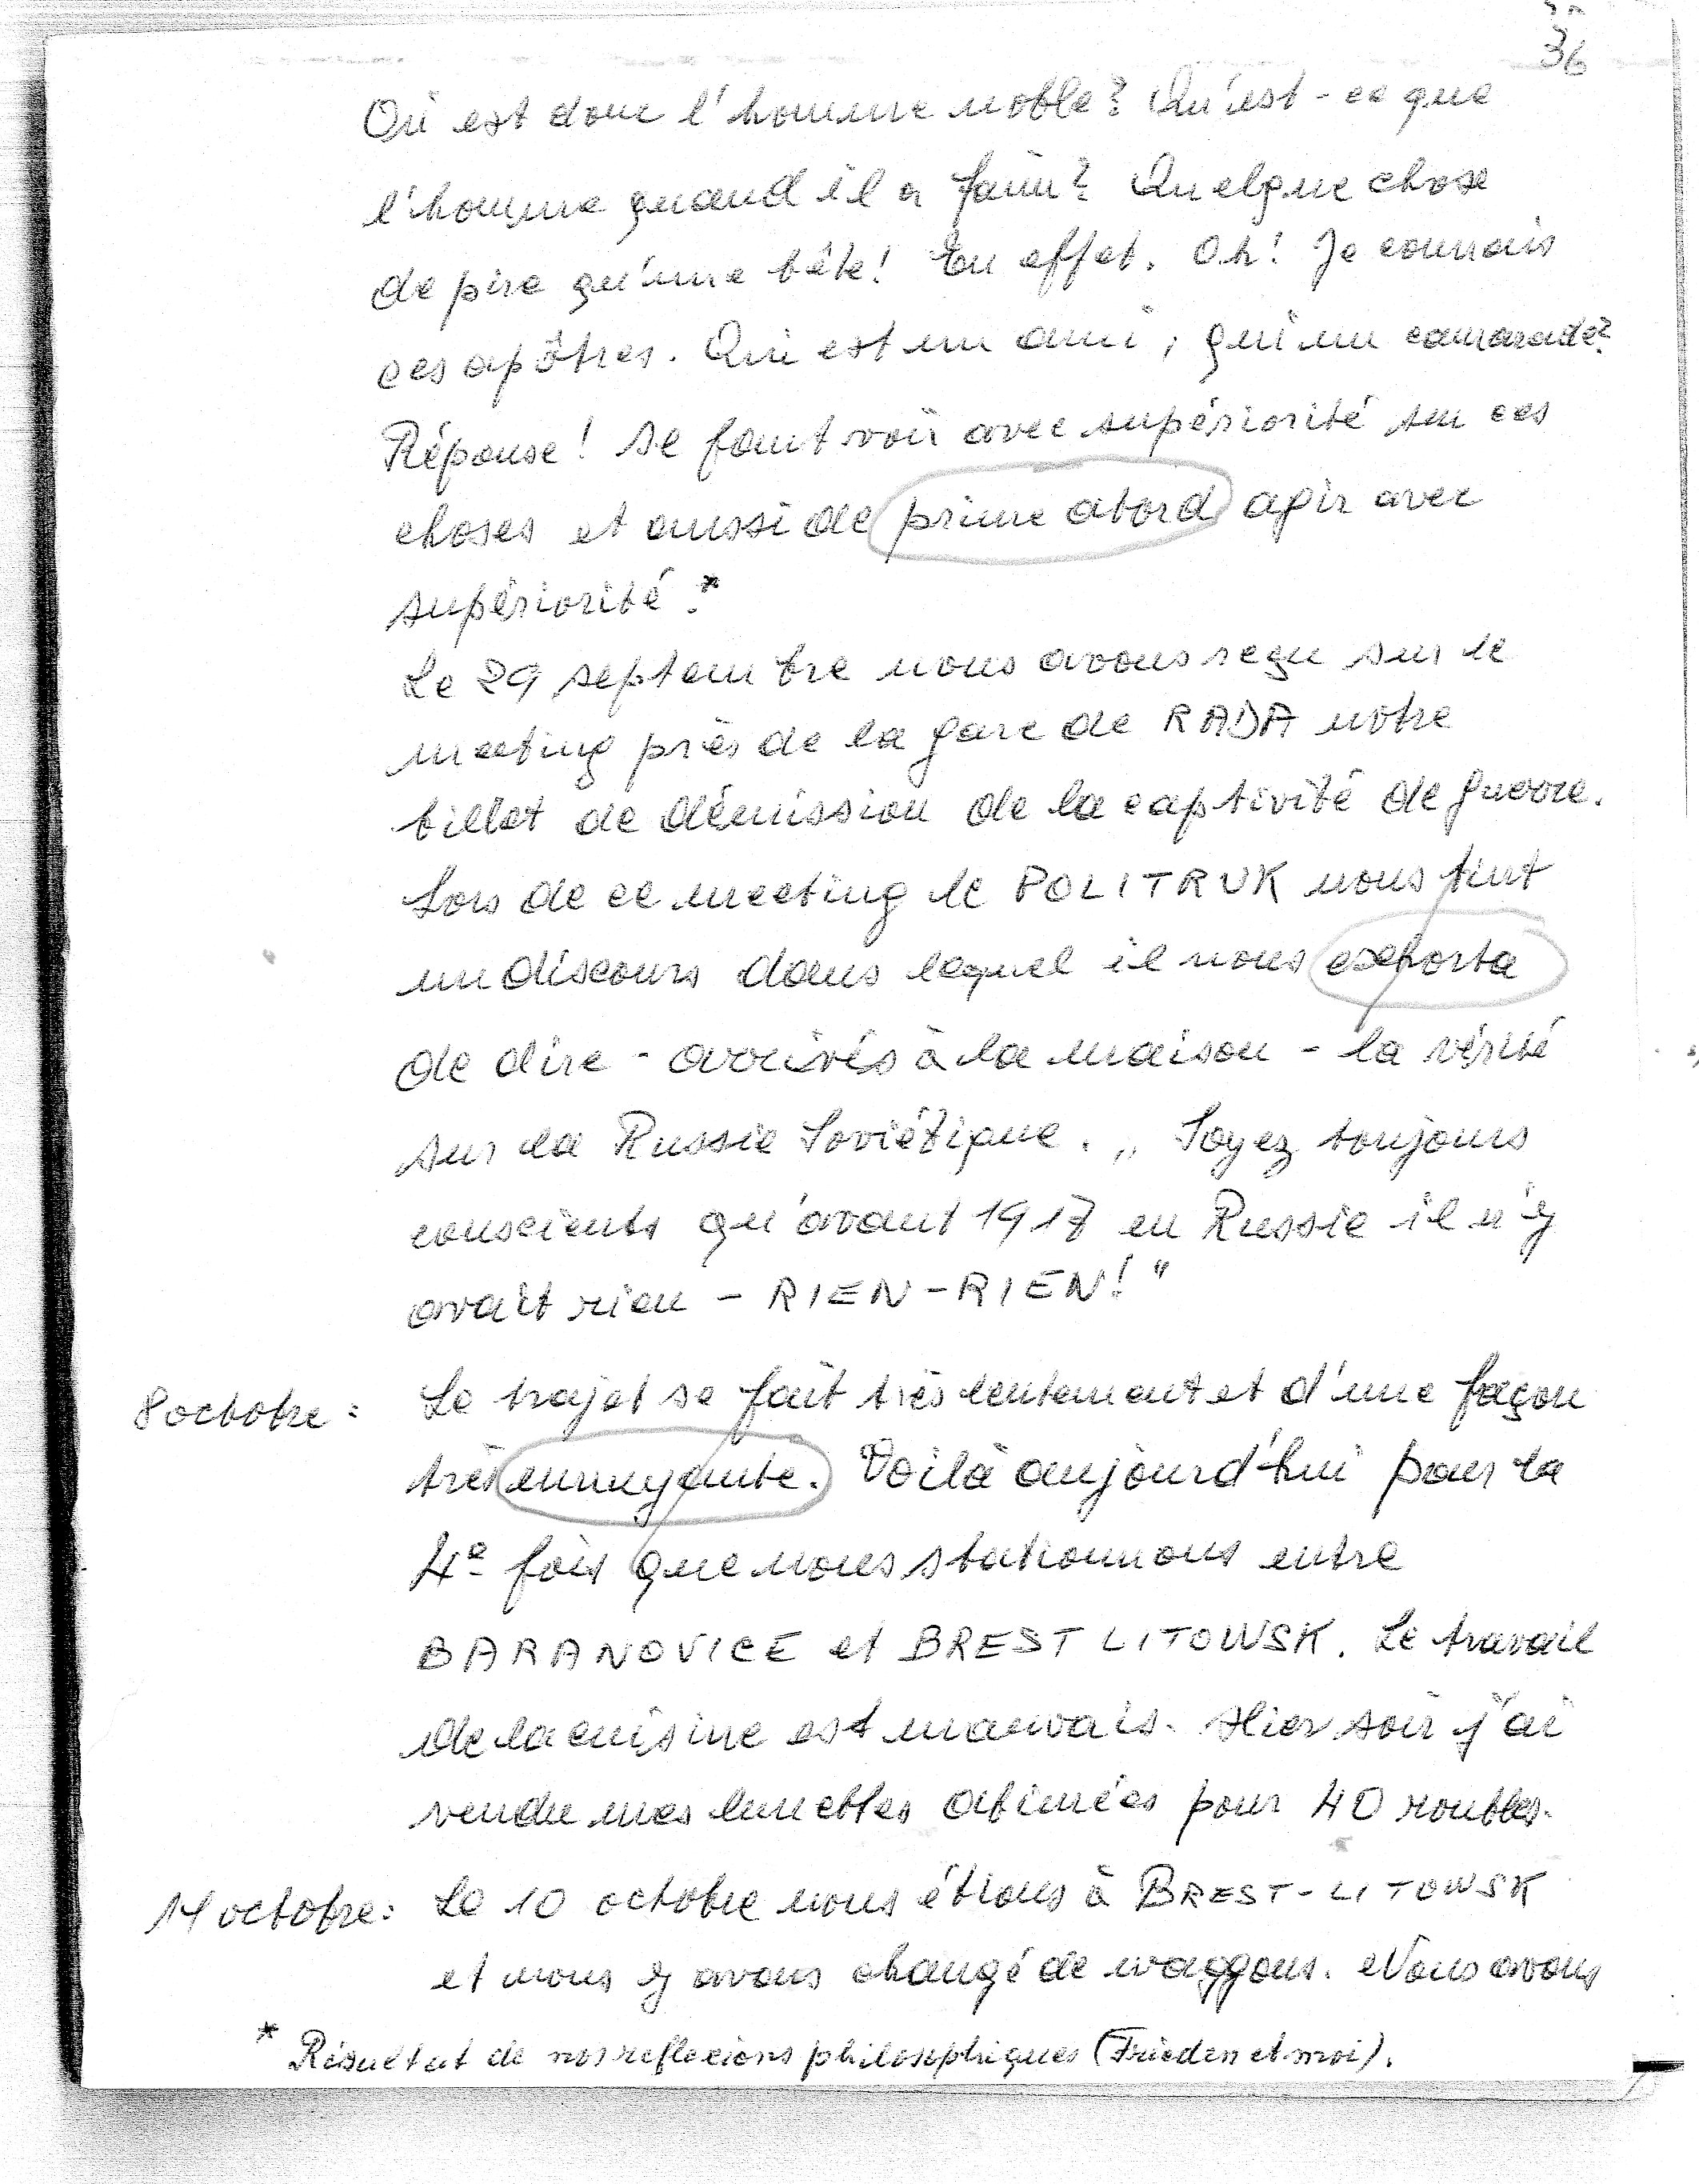 36
Où est donc l'homme noble? Qu'est-ce que
l'homme quand il a faim? Quelque chose
de pire qu'une bête! En effet. Oh! Je connais
ces apôtres. Qui est un ami, qui un camarade?
Réponse! se faut voir avec supériorité sur ces
choses et aussi de prime abord agir avec
supériorité.*
Le 29 septembre nous avons reçu sur le
meeting près de la gare de RADA notre
billet de démission de la captivité de guerre.
Lors de ce meeting le POLITRUK nous tint
un discours dans lequel il nous exhorta
de dire - arrivés à la maison - la vérité
sur la Russie Soviétique. „Soyez toujours
conscients qu'avant 1917 en Russie il n'y
avait rien - RIEN-RIEN!"
8 octobre: Le trajet se fait très lentement et d'une façon
très ennuyante. Voilà aujourd'hui pour la
4e fois que nous stationnons entre
BARANOVICE et BREST LITOWSK. Le travail
de la cuisine est mauvais. Hier soir j'ai
vendu mes lunettes abimées pour 40 roubles.
14 octobre: Le 10 octobre nous étions à BREST-LITOWSK
et nous y avons changé de waggons. Nous avons
* Résultat de nos reflexions philosophiques (Frieden et moi).